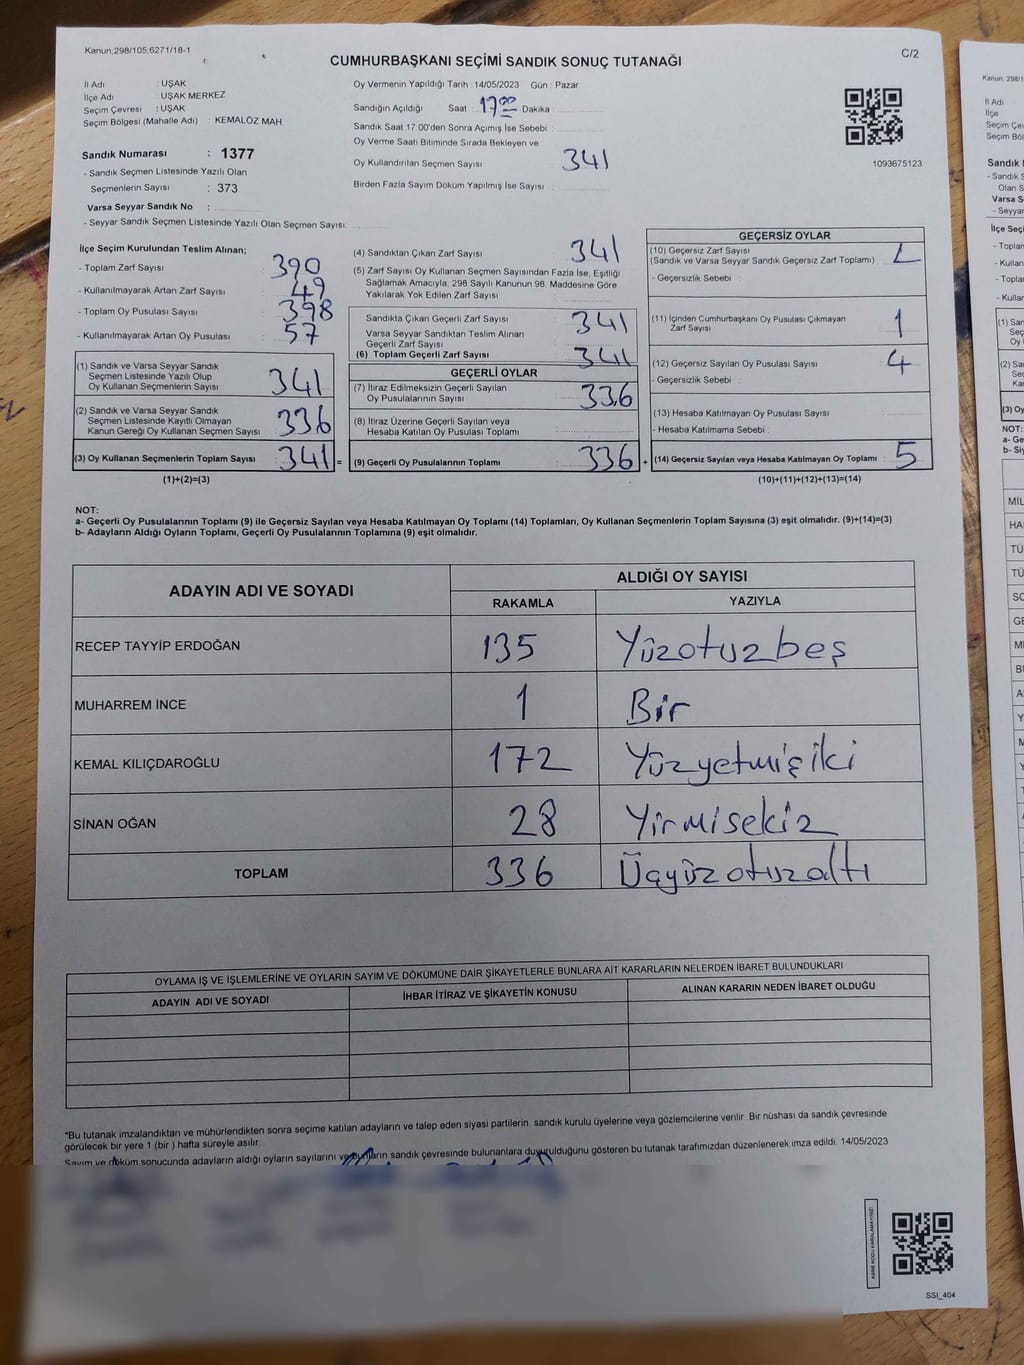 Kanun;298/105;6271/18-1
C/2
CUMHURBAŞKANI SEÇİMİ SANDIK SONUÇ TUTANAĞI
İl Adı : UŞAK
İlçe Adı : UŞAK MERKEZ
Seçim Çevresi : UŞAK
Seçim Bölgesi (Mahalle Adı) : KEMALÖZ MAH
Sandık Numarası : 1377
- Sandık Seçmen Listesinde Yazılı Olan
Seçmenlerin Sayısı : 373
Varsa Seyyar Sandık No :
- Seyyar Sandık Seçmen Listesinde Yazılı Olan Seçmen Sayısı:
Oy Vermenin Yapıldığı Tarih : 14/05/2023 Gün : Pazar
Sandığın Açıldığı Saat : 17 00 Dakika :
Sandık Saat 17:00'den Sonra Açımış İse Sebebi :
Oy Verme Saati Bitiminde Sırada Bekleyen ve
Oy Kullandırılan Seçmen Sayısı : 341
Birden Fazla Sayım Döküm Yapılmış İse Sayısı :
1093675123
İlçe Seçim Kurulundan Teslim Alınan;
- Toplam Zarf Sayısı : 390
- Kullanılmayarak Artan Zarf Sayısı : 49
- Toplam Oy Pusulası Sayısı : 398
- Kullanılmayarak Artan Oy Pusulası : 57
(1) Sandık ve Varsa Seyyar Sandık
Seçmen Listesinde Yazılı Olup
Oy Kullanan Seçmenlerin Sayısı : 341
(2) Sandık ve Varsa Seyyar Sandık
Seçmen Listesinde Kayıtlı Olmayan
Kanun Gereği Oy Kullanan Seçmen Sayısı : 336
(3) Oy Kullanan Seçmenlerin Toplam Sayısı : 341 =
(1)+(2)=(3)
(4) Sandıktan Çıkan Zarf Sayısı : 341
(5) Zarf Sayısı Oy Kullanan Seçmen Sayısından Fazla İse, Eşitliği
Sağlamak Amacıyla, 298 Sayılı Kanunun 98. Maddesine Göre
Yakılarak Yok Edilen Zarf Sayısı :
Sandıkta Çıkan Geçerli Zarf Sayısı : 341
Varsa Seyyar Sandıktan Teslim Alınan
Geçerli Zarf Sayısı :
(6) Toplam Geçerli Zarf Sayısı : 341
GEÇERLİ OYLAR
(7) İtiraz Edilmeksizin Geçerli Sayılan
Oy Pusulalarının Sayısı : 336
(8) İtiraz Üzerine Geçerli Sayılan veya
Hesaba Katılan Oy Pusulası Toplamı :
(9) Geçerli Oy Pusulalarının Toplamı : 336 +
GEÇERSİZ OYLAR
(10) Geçersiz Zarf Sayısı
(Sandık ve Varsa Seyyar Sandık Geçersiz Zarf Toplamı) :
- Geçersizlik Sebebi :
(11) İçinden Cumhurbaşkanı Oy Pusulası Çıkmayan
Zarf Sayısı : 1
(12) Geçersiz Sayılan Oy Pusulası Sayısı : 4
- Geçersizlik Sebebi :
(13) Hesaba Katılmayan Oy Pusulası Sayısı :
- Hesaba Katılmama Sebebi :
(14) Geçersiz Sayılan veya Hesaba Katılmayan Oy Toplamı : 5
(10)+(11)+(12)+(13)=(14)
NOT:
a- Geçerli Oy Pusulalarının Toplamı (9) ile Geçersiz Sayılan veya Hesaba Katılmayan Oy Toplamı (14) Toplamları, Oy Kullanan Seçmenlerin Toplam Sayısına (3) eşit olmalıdır. (9)+(14)=(3)
b- Adayların Aldığı Oyların Toplamı, Geçerli Oy Pusulalarının Toplamına (9) eşit olmalıdır.
ADAYIN ADI VE SOYADI
ALDIĞI OY SAYISI
RAKAMLA YAZIYLA
RECEP TAYYİP ERDOĞAN 135 Yüzotuzbeş
MUHARREM İNCE 1 Bir
KEMAL KILIÇDAROĞLU 172 Yüzyetmişiki
SİNAN OĞAN 28 Yirmisekiz
TOPLAM 336 Üçyüzotuzaltı
OYLAMA İŞ VE İŞLEMLERİNE VE OYLARIN SAYIM VE DÖKÜMÜNE DAİR ŞİKAYETLERLE BUNLARA AİT KARARLARIN NELERDEN İBARET BULUNDUKLARI
ADAYIN ADI VE SOYADI İHBAR İTİRAZ VE ŞİKAYETİN KONUSU ALINAN KARARIN NEDEN İBARET OLDUĞU
*Bu tutanak imzalandıktan ve mühürlendikten sonra seçime katılan adayların ve talep eden siyasi partilerin sandık kurulu üyelerine veya gözlemcilerine verilir. Bir nüshası da sandık çevresinde
görülecek bir yere 1 (bir ) hafta süreyle asılır.
Sayım ve döküm sonucunda adayların aldığı oyların sayılarını ve bunların sandık çevresinde bulunanlara duyurulduğunu gösteren bu tutanak tarafımızdan düzenlenerek imza edildi. 14/05/2023
SSİ_404